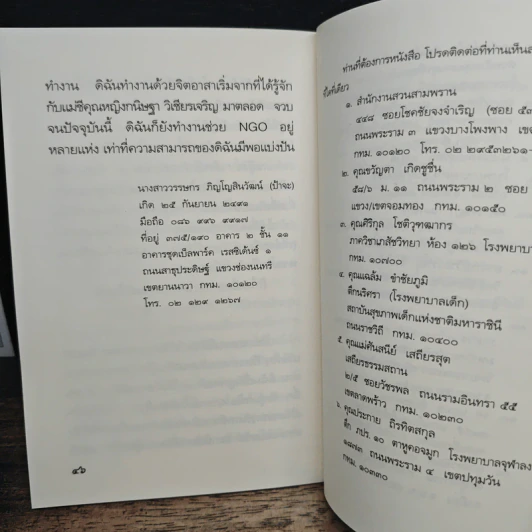 ทำงาน ดิฉันทำงานด้วยจิตอาสาเริ่มจากที่ได้รู้จัก
กับแม่ชีคุณหญิงกนิษฐา วิเชียรเจริญ มาตลอด จวบ
จนปัจจุบันนี้ ดิฉันก็ยังทำงานช่วย NGO อยู่
หลายแห่ง เท่าที่ความสามารถของดิฉันมีพอแบ่งปัน
นางสาววรรษกร ภิญโญสินวัฒน์ (ป้าจะ)
เกิด ๒๕ กันยายน ๒๔๙๑
มือถือ ๐๘๖ ๙๙๖ ๙๙๑๗
ที่อยู่ ๓๗๕/๑๙๐ อาคาร ๒ ชั้น ๑๑
อาคารชุดเบ็ลพาร์ค เรสซิเด้นซ์ ๑
ถนนสาธุประดิษฐ์ แขวงช่องนนทรี
เขตยานนาวา กทม. ๑๐๑๒๐
โทร. ๐๒ ๑๒๙ ๑๒๖๗
๔๖
ท่านที่ต้องการหนังสือ โปรดติดต่อที่ท่านเห็นส
๑. สำนักงานสวนสามพราน
๔๔๘ ซอยโชคชัยจงจำเริญ (ซอย ๕
ถนนพระราม ๓ แขวงบางโพงพาง เข
กทม. ๑๐๑๒๐ โทร. ๐๒ ๒๙๕๓๒๖๑-
๒. คุณขวัญตา เกิดชูชื่น
๕๘/๖ ม. ๑๑ ถนนพระราม ๒ ซอย
แขวง/เขตจอมทอง กทม. ๑๐๑๕๐
๓. คุณศิริกุล โชติวุฑฒากร
ภาควิชาเภสัชวิทยา ห้อง ๑๒๖ โรงพยาบ
กทม. ๑๐๗๐๐
๔. คุณแฉล้ม ขำชัยภูมิ
ตึกนริศรา (โรงพยาบาลเด็ก)
สถาบันสุขภาพเด็กแห่งชาติมหาราชินี
ถนนราชวิถี กทม. ๑๐๔๐๐
๕. คุณแม่ศันสนีย์ เสถียรสุต
เสถียรธรรมสถาน
๒/๕ ซอยวัชรพล ถนนรามอินทรา ๕๕
เขตลาดพร้าว กทม. ๑๐๒๓๐
๖. คุณประกาย ถิรทิตสกุล
ตึก ภปร. ๑๐ ตาหูคอจมูก โรงพยาบาลจุฬาลง
๑๘๗๓ ถนนพระราม ๔ เขตปทุมวัน
กทม. ๑๐๓๓๐